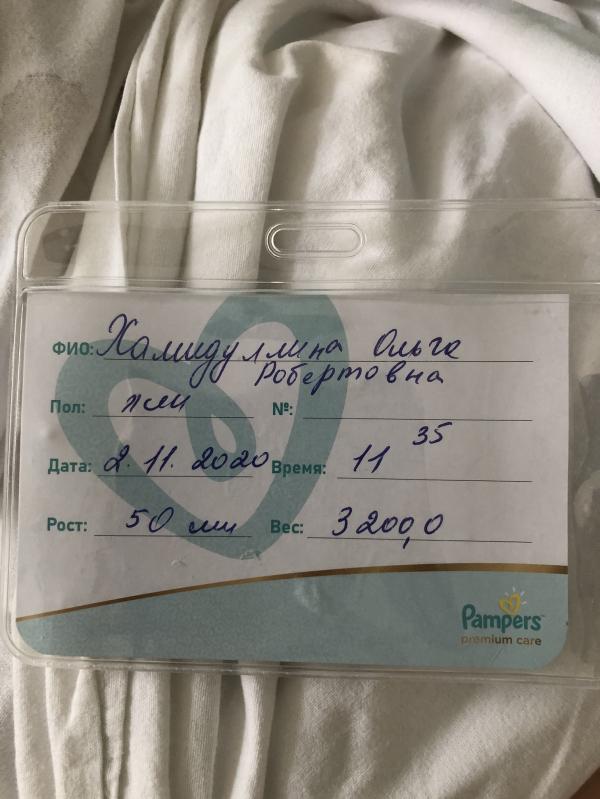 ФИО: Хамидуллина Ольга
Робертовна
Пол: жен №:
Дата: 2.11.2020 Время: 11 35
Рост: 50 см Вес: 3200,0
Pampers
premium care